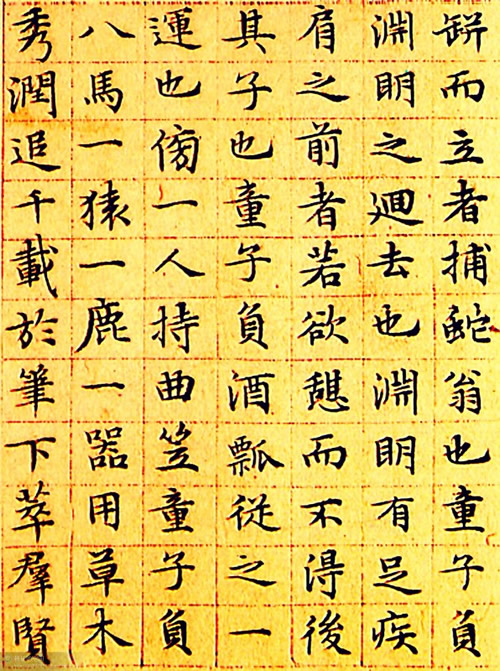 缾而立者捕蛇翁也童子負
淵明之迴去也淵明有足疾
肩之前者若欲憩而不得後
其子也童子負酒瓢從之一
運也傍一人持曲笠童子負
八馬一猿一鹿一器用草木
秀潤追千載於筆下萃羣賢